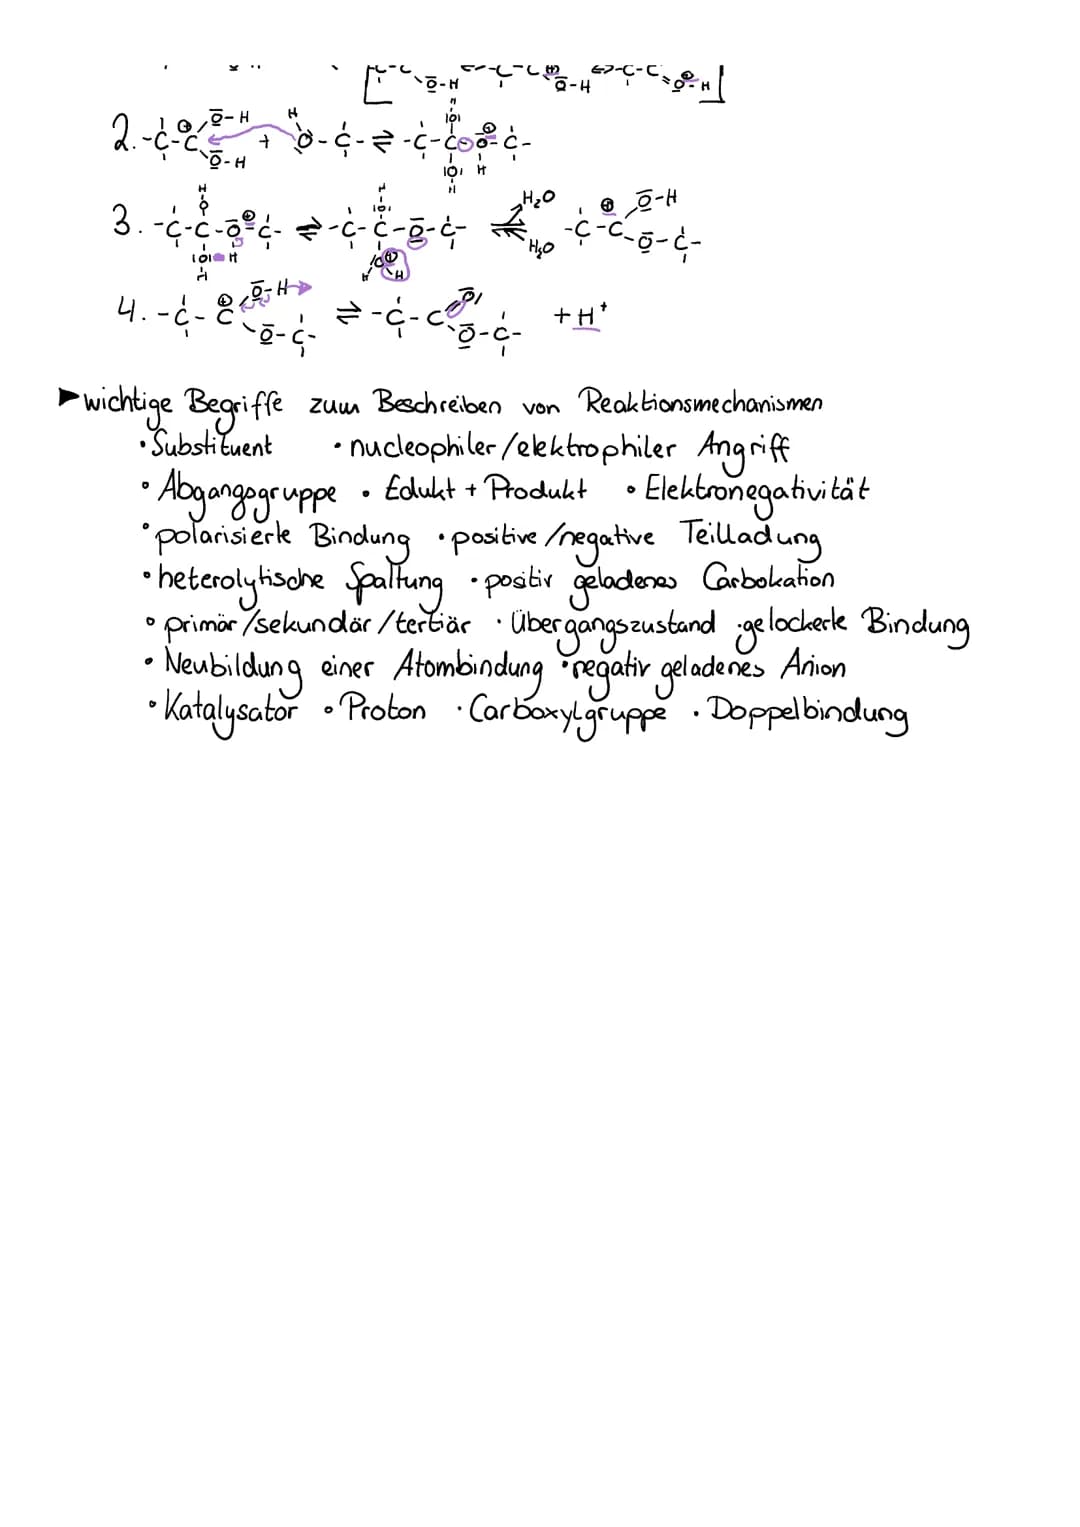 2. -C-C⊕ O-H O-H + H O-C- ⇌ -C-C-O⊕-C- H
3. -C-C-O⊕-C- ⇌ -C-C-O-C- ⇌ H₂O H₂O -C-C⊕ O-H O-C-
4. -C-C⊕ O-H O-C- ⇌ -C-C O O-C- + H⁺
▶ wichtige Begriffe zum Beschreiben von Reaktionsmechanismen
• Substituent • nucleophiler/elektrophiler Angriff
• Abgangsgruppe • Edukt + Produkt • Elektronegativität
• polarisierte Bindung • positive/negative Teilladung
• heterolytische Spaltung • positiv geladenes Carbokation
• primär/sekundär/tertiär • Übergangszustand • gelockerte Bindung
• Neubildung einer Atombindung • negativ geladenes Anion
• Katalysator • Proton • Carboxylgruppe • Doppelbindung